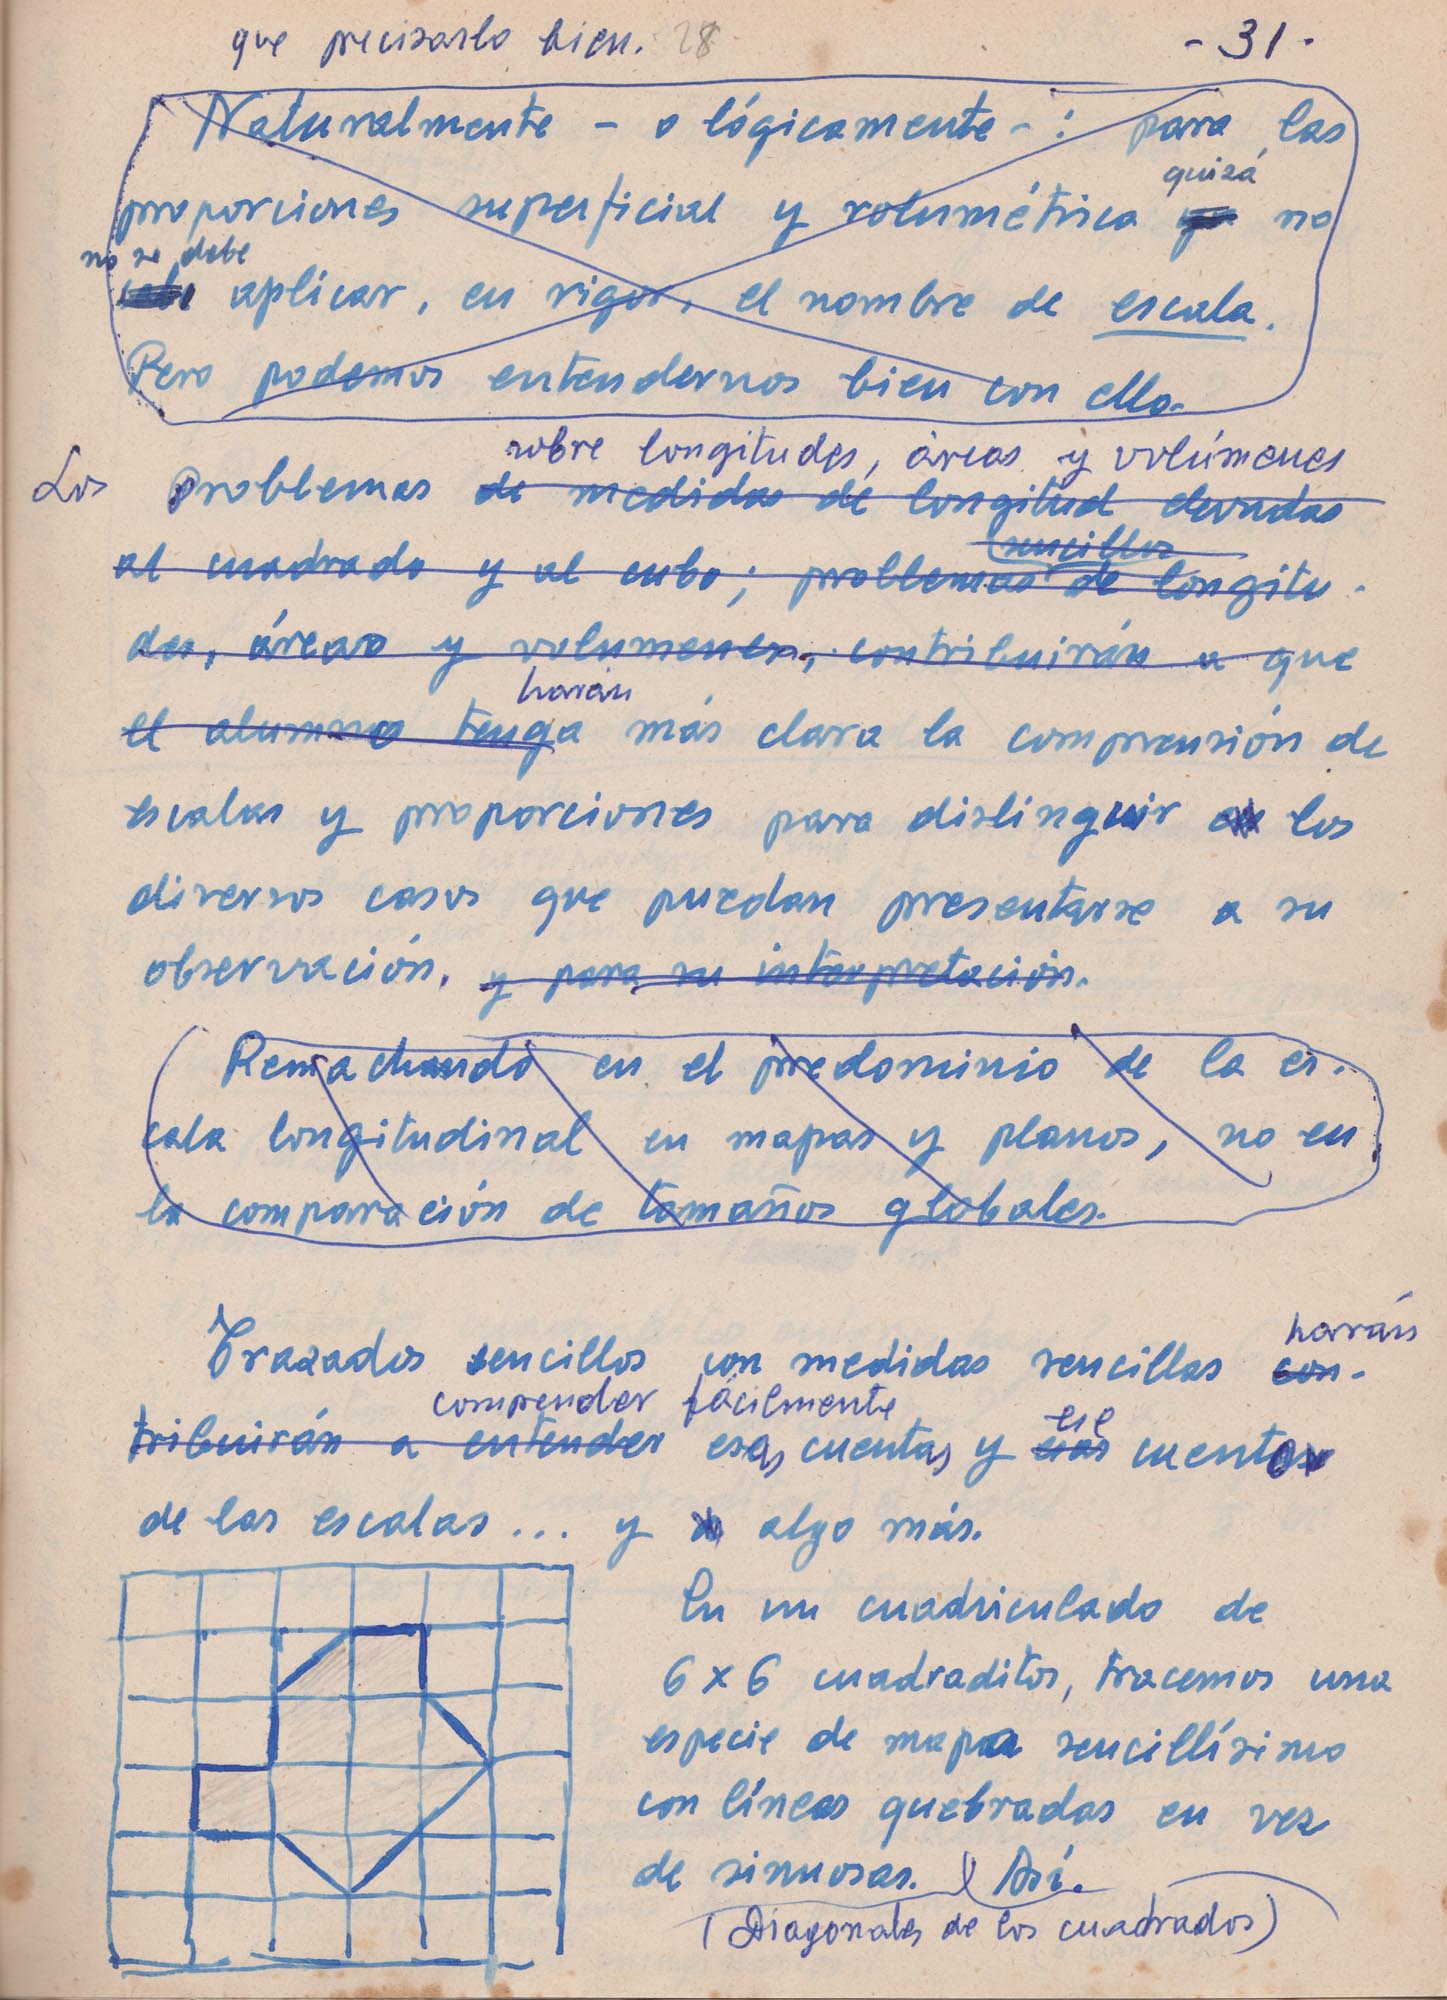 que precisarlo bien. 28 - 31 -
Naturalmente - o lógicamente - : para las
quizá
proporciones superficial y volumétrica no
no se debe
aplicar, en rigor, el nombre de escala.
Pero podemos entendernos bien con ello.
sobre longitudes, áreas y volúmenes
Los problemas de medidas de longitud elevadas
sencillos
al cuadrado y al cubo; problemas de longitu-
des, áreas y volumenes, contribuirán a que
harán
el alumno tenga más clara la comprensión de
escalas y proporciones para distinguir los
diversos casos que puedan presentarse a su
observación. y para su interpretación.
Remachando en el predominio de la es-
cala longitudinal en mapas y planos, no en
la comparación de tamaños globales.
harán
Trazados sencillos con medidas sencillas con-
comprender fácilmente
ese
tribuirán a entender esas cuentas y esas cuento
de las escalas ... y algo más.
En un cuadriculado de
6 x 6 cuadraditos, tracemos una
especie de mapa sencillísimo
con líneas quebradas en vez
de sinuosas. Así.
(Diagonales de los cuadrados)